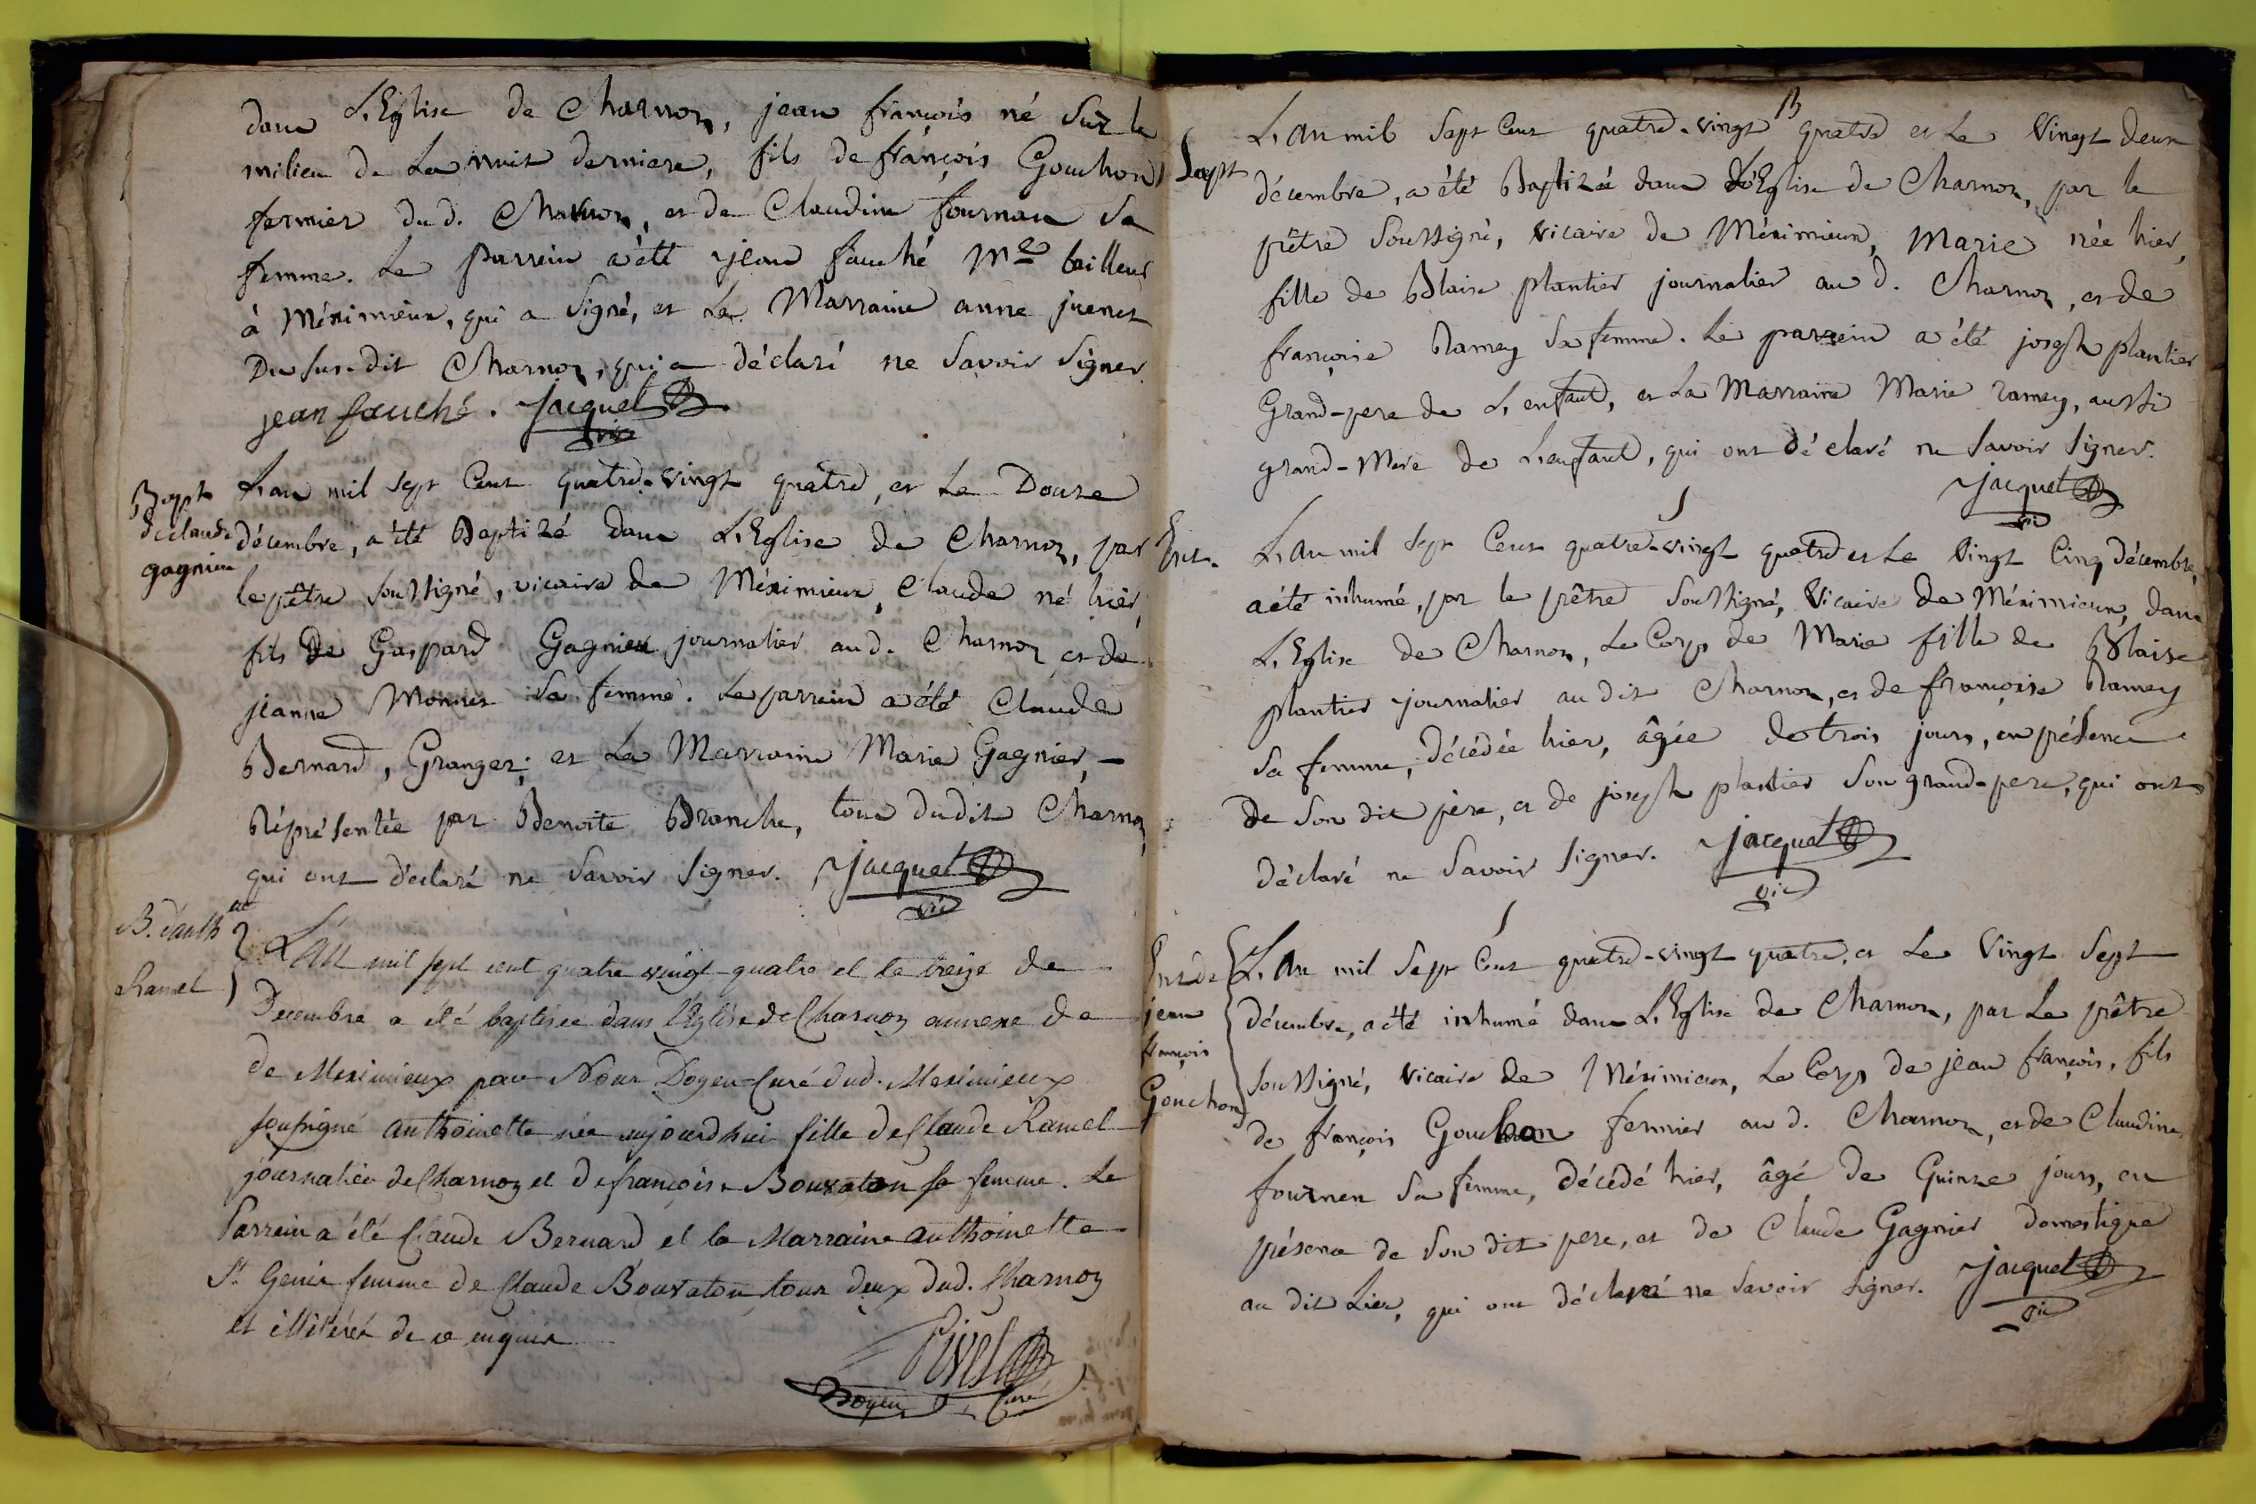 dans L'Eglise de Charnoz, jean françois né Sur le
milieu de La nuit derniere, fils de françois Gouchon
fermier du d. Charnoz, et de Claudine fournau Sa
femme. Le parrein a été jean fauché Me tailleur
à Méximieux, qui a Signé, et La Marraine anne juenet
Du Sus-dit Charnoz, qui a déclaré ne Savoir Signer.
jean fauché. Jacquet
vic
Bapt
de claude
gagnieu
L'an mil Sept Cent quatre-vingt quatre, et Le Douze
décembre, a été Baptizé dans L'Eglise de Charnoz, par
le prêtre Soussigné, vicaire de Méximieux, Claude né hier,
fils De Gaspard Gagnier journalier au d. Charnoz et de
jeanne Monnet Sa femme. Le parrein a été Claude
Bernard, Granger; et La Marraine Marie Gagnier, -
Réprésentée par Benoîte Branche, tous dudit Charnoz,
qui ont déclaré ne Savoir Signer. Jacquet
vic
B. d'anth
Ramel
L'an mil sept cent quatre vingt-quatre et le treize de
Decembre a été baptisée dans l'Eglise de Charnoz annexe de
de Meximieux par Nous Doyen-Curé dud. Meximieux
soussigné anthoinette née aujourdhui fille de Claude Ramel
journalier de Charnoz et de françoise Bouvaton sa femme. Le
Parrein a été Claude Bernard et la Marraine anthoinette
St. Genis femme de Claude Bouvaton tous deux dud. Charnoz
et illiterés de ce enquis
Doyen Curé
B
Bapt
L'an mil Sept Cent quatre-vingt quatre et Le Vingt deux
décembre, a été Baptizée dans L'Eglise de Charnoz, par le
prêtre Soussigné, vicaire de Méximieux, Marie née hier,
fille de Blaise plantier journalier au d. Charnoz, et de
françoise Ramey Sa femme. Le parrein a été joseph plantier
Grand-pere de L'enfant, et La Marraine Marie ramey, aussi
grand-Mere de L'enfant, qui ont déclaré ne Savoir Signer.
Jacquet
vic
S
Ent.
L'an mil Sept Cent quatre-vingt quatre et Le Vingt Cinq décembre,
a été inhumé, par le prêtre Soussigné, Vicaire De Méximieux, dans
L'Eglise de Charnoz, Le Corps de Marie fille de Blaise
plantier journalier au dit Charnoz, et de françoise Ramey
Sa femme, décédée hier, âgée de trois jours, en présence
De Son dit père, et de joseph plantier Son grand-pere, qui ont
déclaré ne Savoir Signer. Jacquet
vic
S
Ent. de
jean
françois
Gouchon
L'an mil Sept Cent quatre-vingt quatre, et Le Vingt Sept
décembre, a été inhumé dans L'Eglise de Charnoz, par Le prêtre
Soussigné, vicaire de Méximieux, Le Corps de jean françois, fils
de françois Gouchon fermier au d. Charnoz, et de Claudine
fournen Sa femme, décédé hier, âgé de Quinze jours, en
présence de Son dit pere, et de Claude Gagnier domestique
au dit Lieu, qui ont déclaré ne Savoir Signer. Jacquet
vic